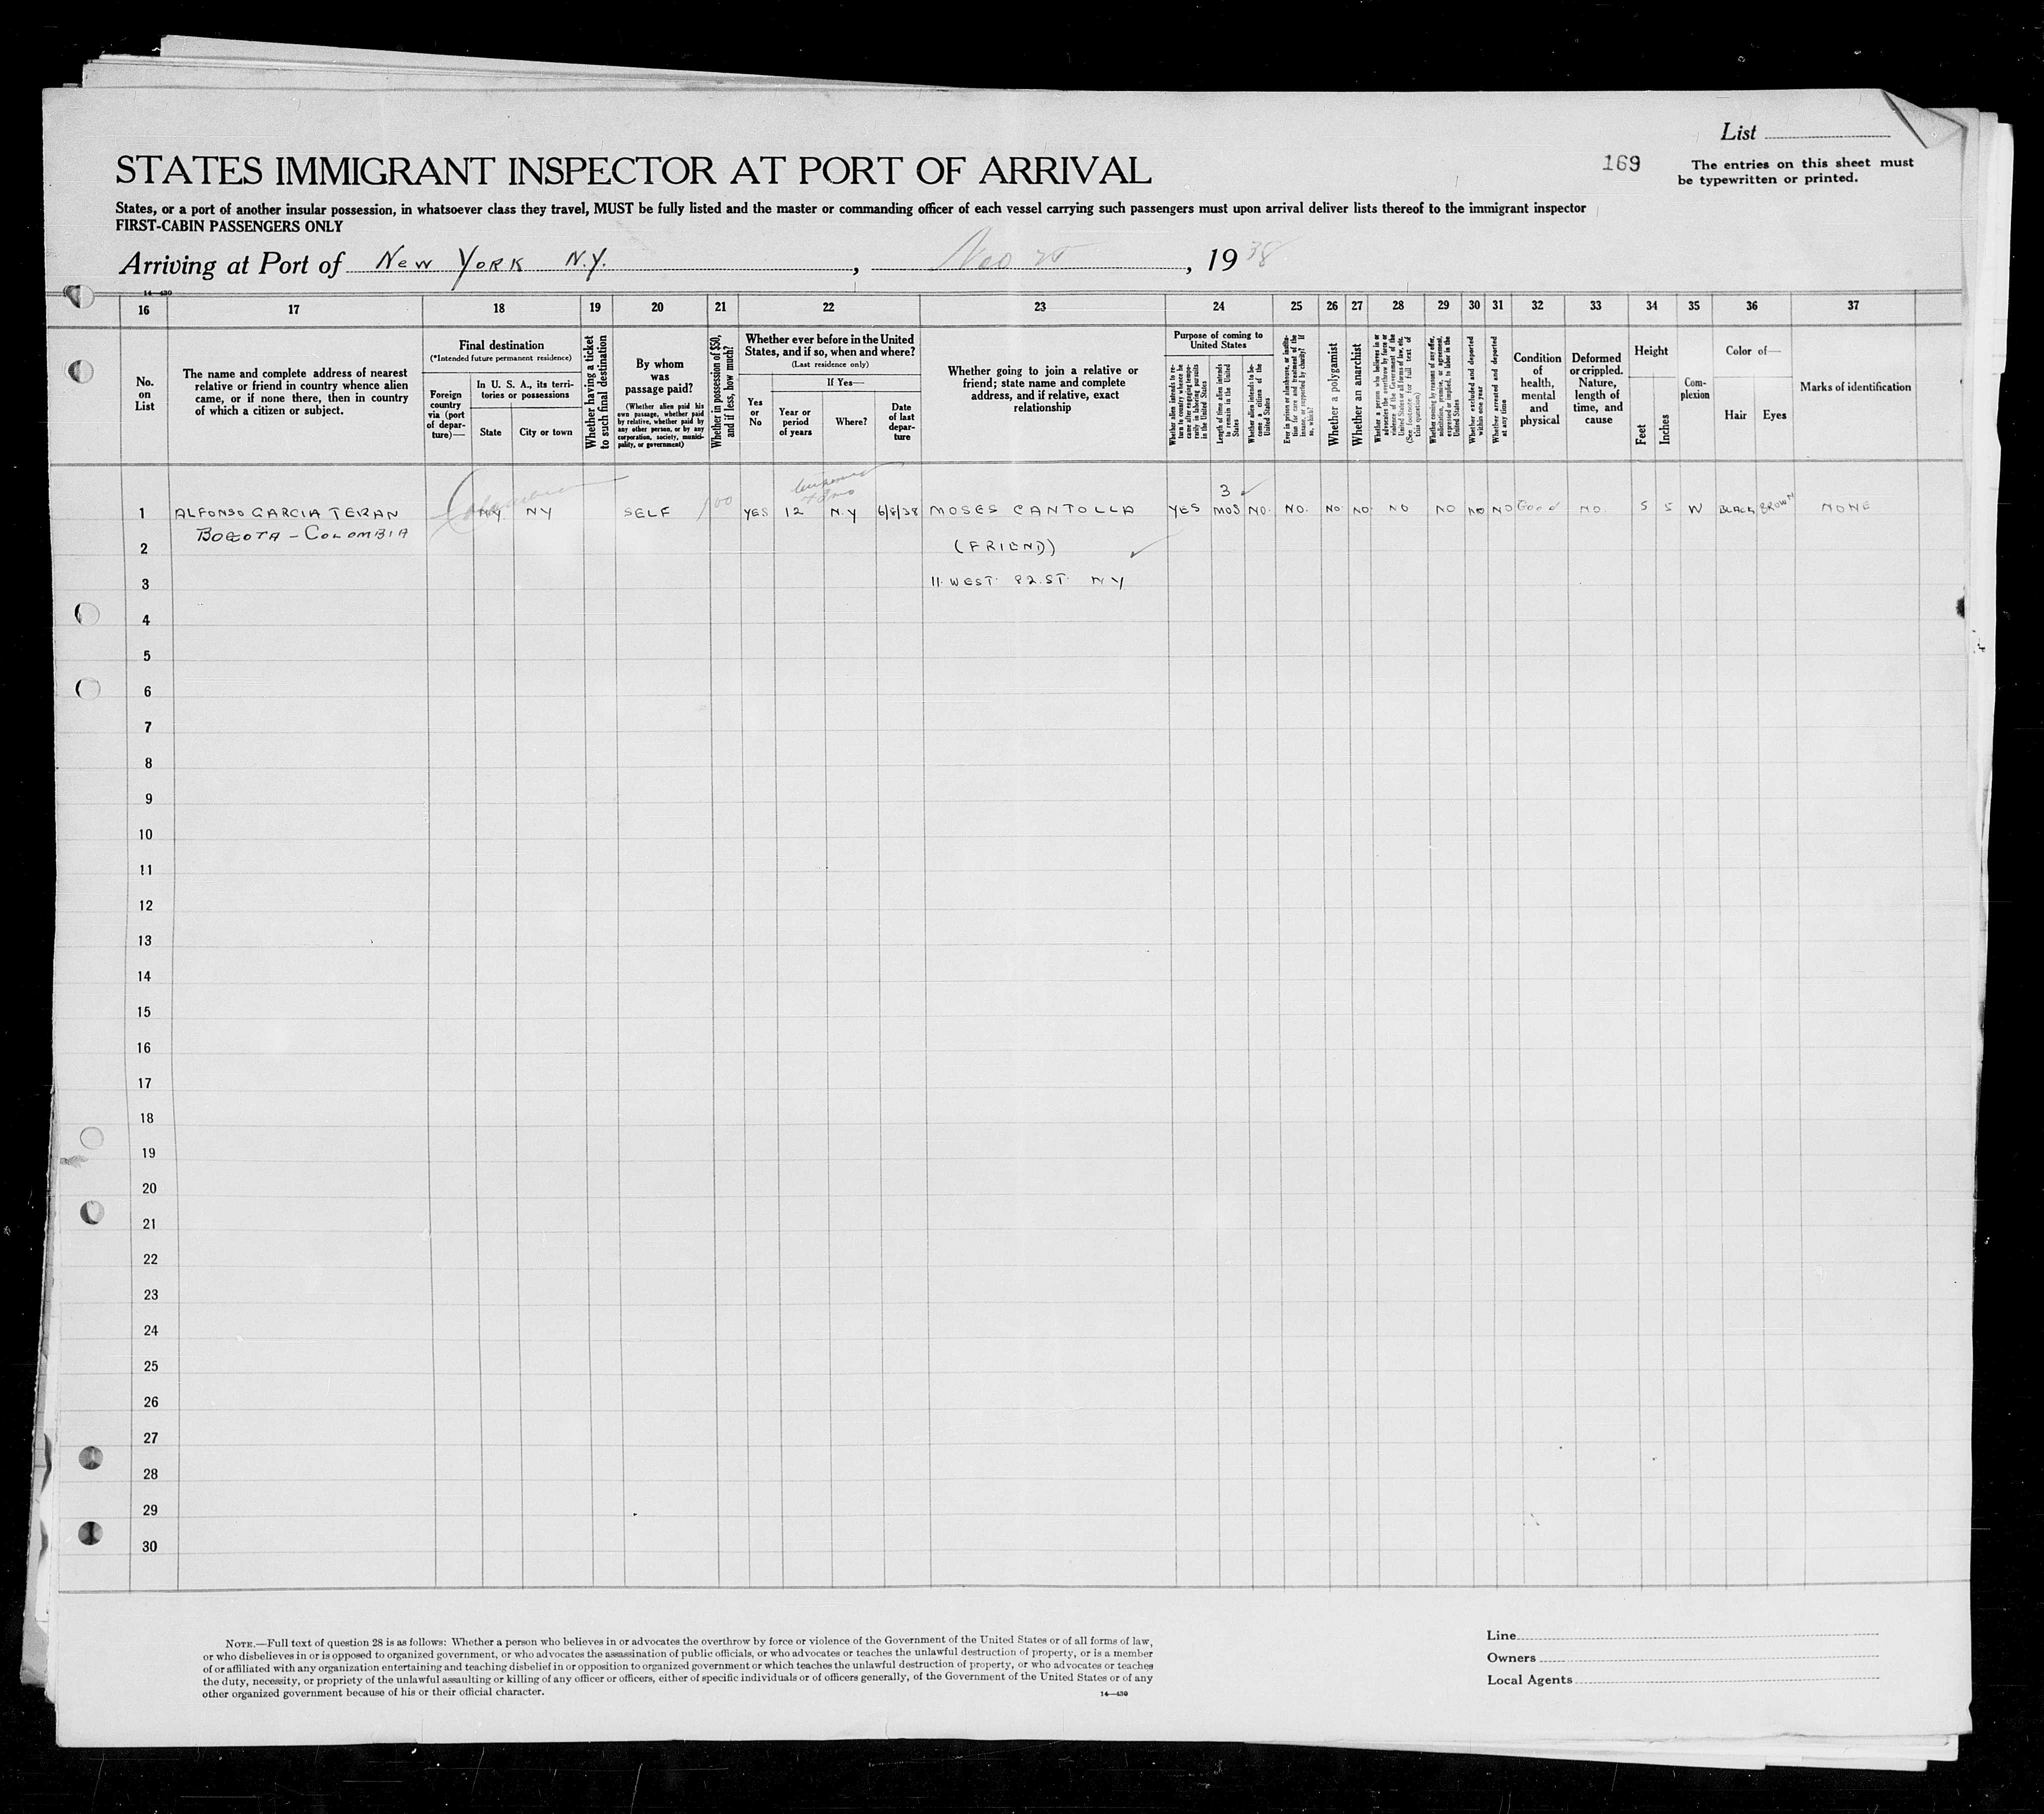 List
169
The entries on this sheet must
be typewritten or printed.
STATES IMMIGRANT INSPECTOR AT PORT OF ARRIVAL
States, or a port of another insular possession, in whatsoever class they travel, MUST be fully listed and the master or commanding officer of each vessel carrying such passengers must upon arrival deliver lists thereof to the immigrant inspector
FIRST-CABIN PASSENGERS ONLY
Arriving at Port of New York N.Y. , , 1938
14—430
16 17 18 19 20 21 22 23 24 25 26 27 28 29 30 31 32 33 34 35 36 37
No.
on
List
The name and complete address of nearest
relative or friend in country whence alien
came, or if none there, then in country
of which a citizen or subject.
Final destination
(*Intended future permanent residence)
Foreign
country
via (port
of depar-
ture)—
In U. S. A., its terri-
tories or possessions
State
City or town
Whether having a ticket
to such final destination
By whom
was
passage paid?
(Whether alien paid his
own passage, whether paid
by relative, whether paid by
any other person, or by any
corporation, society, munici-
pality, or government)
Whether in possession of $50,
and if less, how much?
Whether ever before in the United
States, and if so, when and where?
(Last residence only)
Yes
or
No
If Yes—
Year or
period
of years
Where?
Date
of last
depar-
ture
Whether going to join a relative or
friend; state name and complete
address, and if relative, exact
relationship
Purpose of coming to
United States
Whether alien intends to re-
turn to country whence he
came after engaging tempo-
rarily in laboring pursuits
in the United States
Length of time alien intends
to remain in the United
States
Whether alien intends to be-
come a citizen of the
United States
Ever in prison or almshouse, or institu-
tion for care and treatment of the
insane, or supported by charity? If
so, which?
Whether a polygamist
Whether an anarchist
Whether a person who believes in or
advocates the overthrow by force or
violence of the Government of the
United States or all forms of law, etc.
(See footnote for full text of
this question)
Whether coming by reason of any offer,
solicitation, promise, or agreement,
expressed or implied, to labor in the
United States
Whether excluded and deported
within one year
Whether arrested and deported
at any time
Condition
of
health,
mental
and
physical
Deformed
or crippled.
Nature,
length of
time, and
cause
Height
Feet
Inches
Com-
plexion
Color of—
Hair
Eyes
Marks of identification
3
1 ALFONSO GARCIA TERAN NY NY SELF 100 YES 12 N.Y 6/8/38 MOSES CANTOLLA YES MOS NO. NO. NO NO. NO NO NO NO Good NO. 5 5 W BLACK BROWN NONE
BOGOTA - COLOMBIA
2 (FRIEND)
3 11. WEST 82. ST. NY
4
5
6
7
8
9
10
11
12
13
14
15
16
17
18
19
20
21
22
23
24
25
26
27
28
29
30
NOTE.—Full text of question 28 is as follows: Whether a person who believes in or advocates the overthrow by force or violence of the Government of the United States or of all forms of law,
or who disbelieves in or is opposed to organized government, or who advocates the assassination of public officials, or who advocates or teaches the unlawful destruction of property, or is a member
of or affiliated with any organization entertaining and teaching disbelief in or opposition to organized government or which teaches the unlawful destruction of property, or who advocates or teaches
the duty, necessity, or propriety of the unlawful assaulting or killing of any officer or officers, either of specific individuals or of officers generally, of the Government of the United States or of any
other organized government because of his or their official character.
14—430
Line
Owners
Local Agents